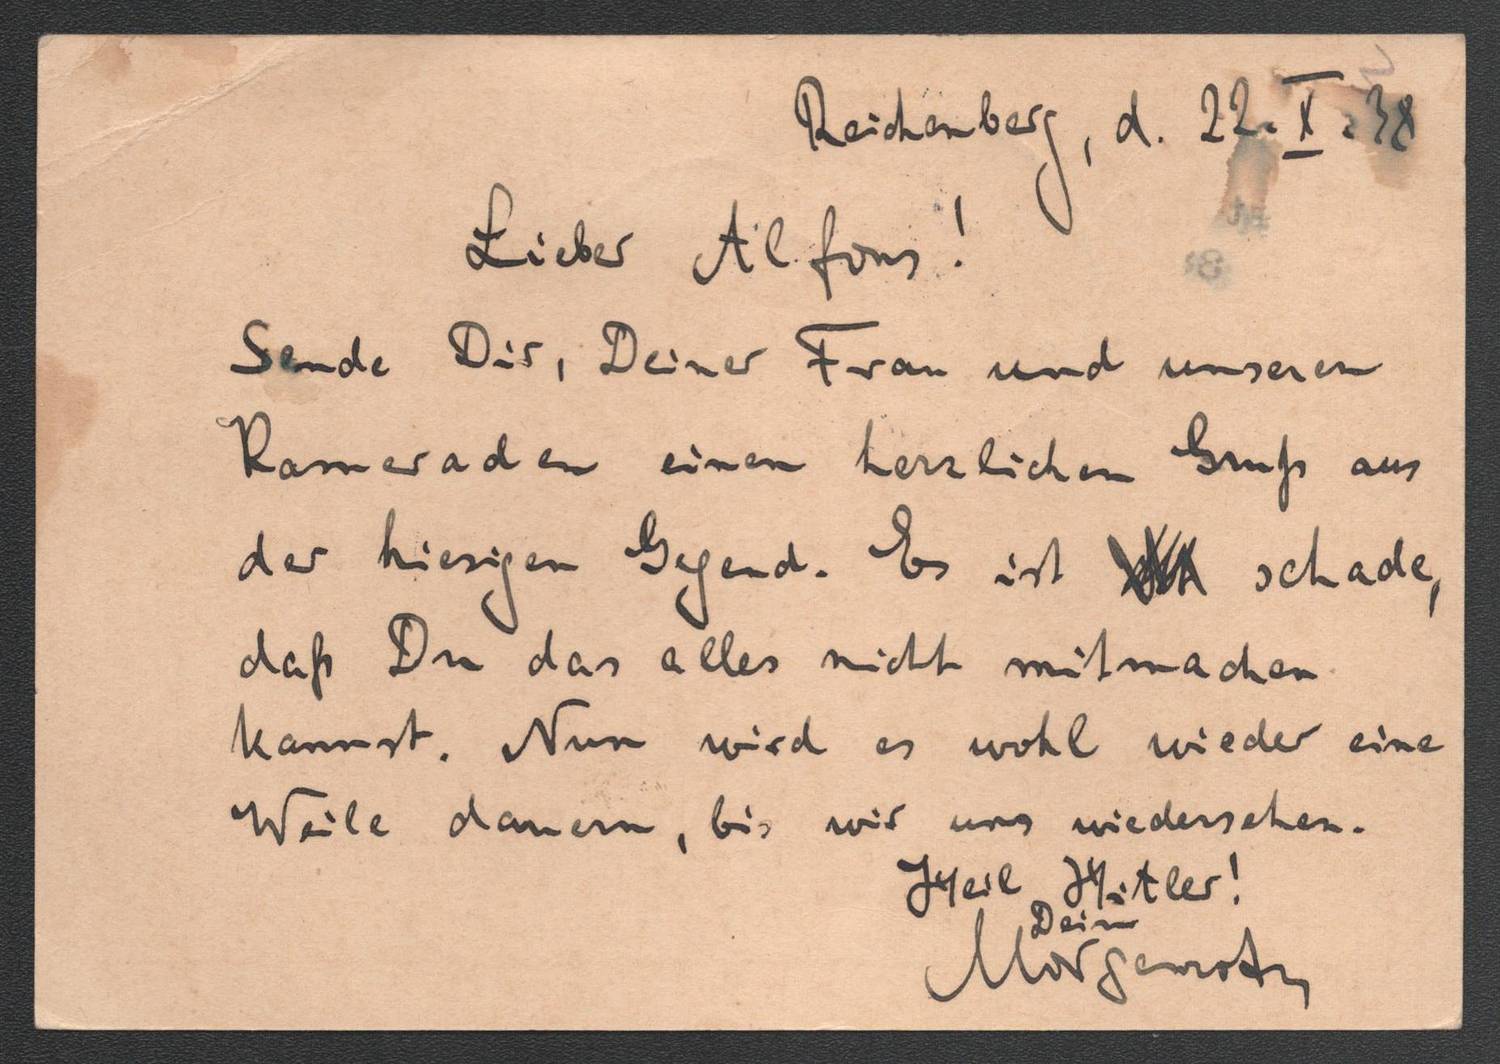 Reichenberg, d. 22. X. 38
Lieber Alfons!
Sende Dir, Deiner Frau und unseren
Kameraden einen herzlichen Gruß aus
der hiesigen Gegend. Es ist schade,
daß Du das alles nicht mitmachen
kannst. Nun wird es wohl wieder eine
Weile dauern, bis wir uns wiedersehen.
Heil Hitler!
Dein
Morgenroth